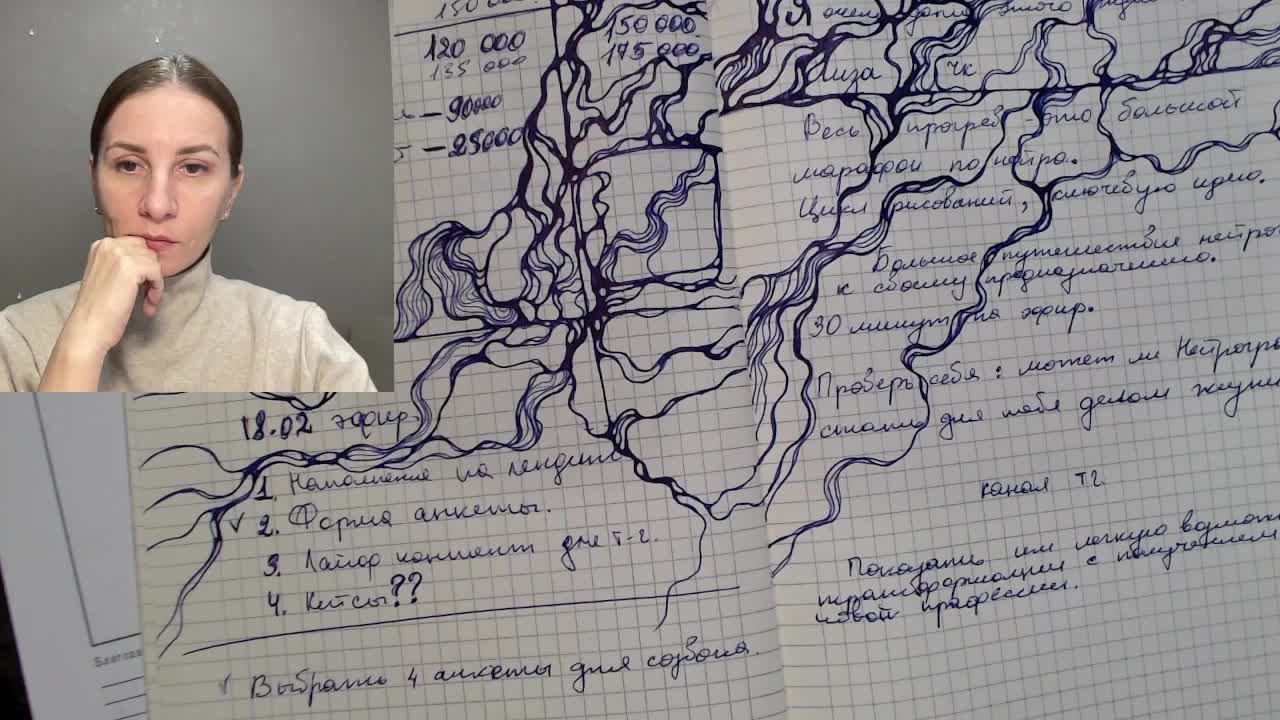 150 000
120 000
135 000
— 90000
— 25000
150 000
175 000
18.02 эфир.
1. Наполнение на лендинг
2. Форма анкеты.
3. Лайфор контент для т-г.
4. Кейсы??
Выбрать 4 анкеты для созвона.
Я очень этого
Лиза чк
Весь прогрев - это большой
марафон по нейро.
Цикл рисований, ключевую идею.
Большое путешествие нейро
к своему предназначению.
30 минут на эфир.
Проверь себя: может ли Нейрогра
стать для тебя делом жизни
канал тг
Показать им легкую
трансформации с получением
новой профессии.
Благодар